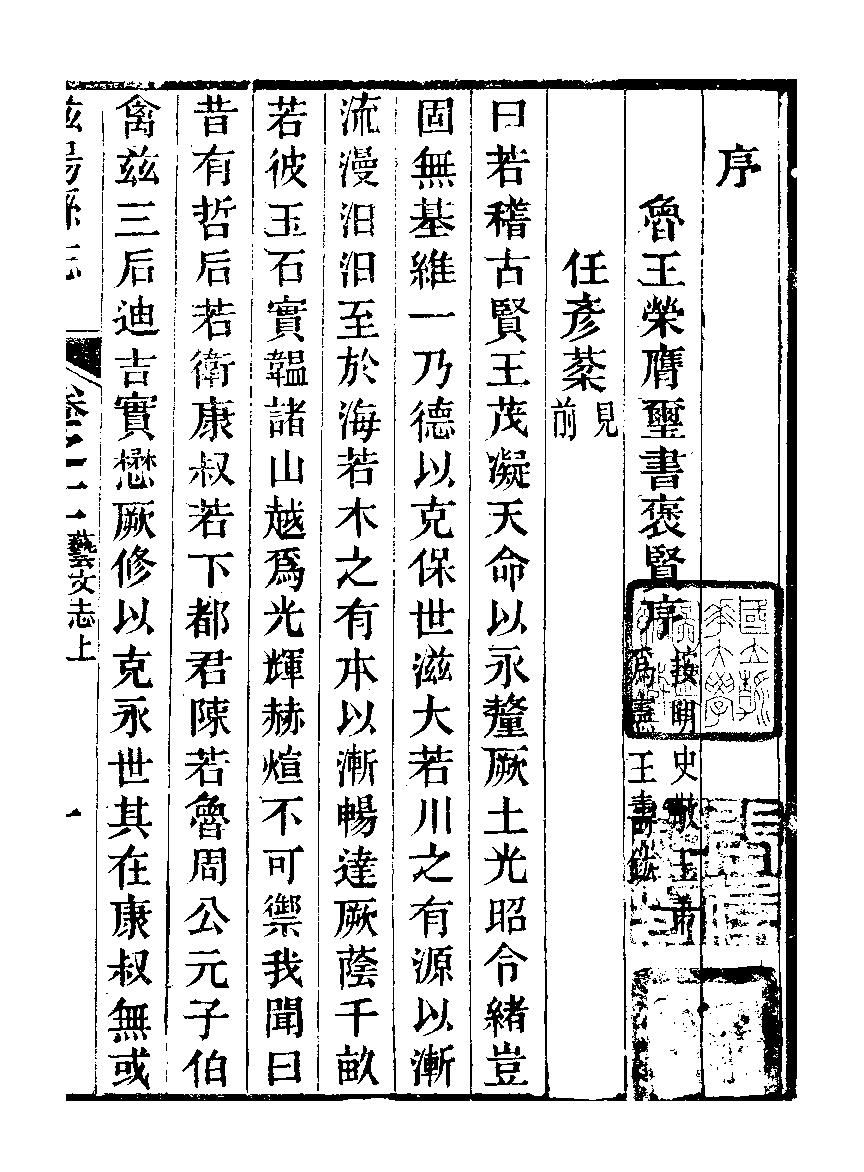 序
魯王榮膺璽書褒賢序
按明史敬王
爲憲王壽鋐
任彥棻
見
前
曰若稽古賢王茂凝天命以永釐厥土光昭令緒豈
固無基維一乃德以克保世滋大若川之有源以漸
流漫汨汨至於海若木之有本以漸暢達厥蔭千畝
若彼玉石實韞諸山越爲光輝赫煊不可禦我聞曰
昔有哲后若衛康叔若下都君陳若魯周公元子伯
禽兹三后迪吉實懋厥修以克永世其在康叔無或
兹陽縣志
卷之十二
藝文志上
一